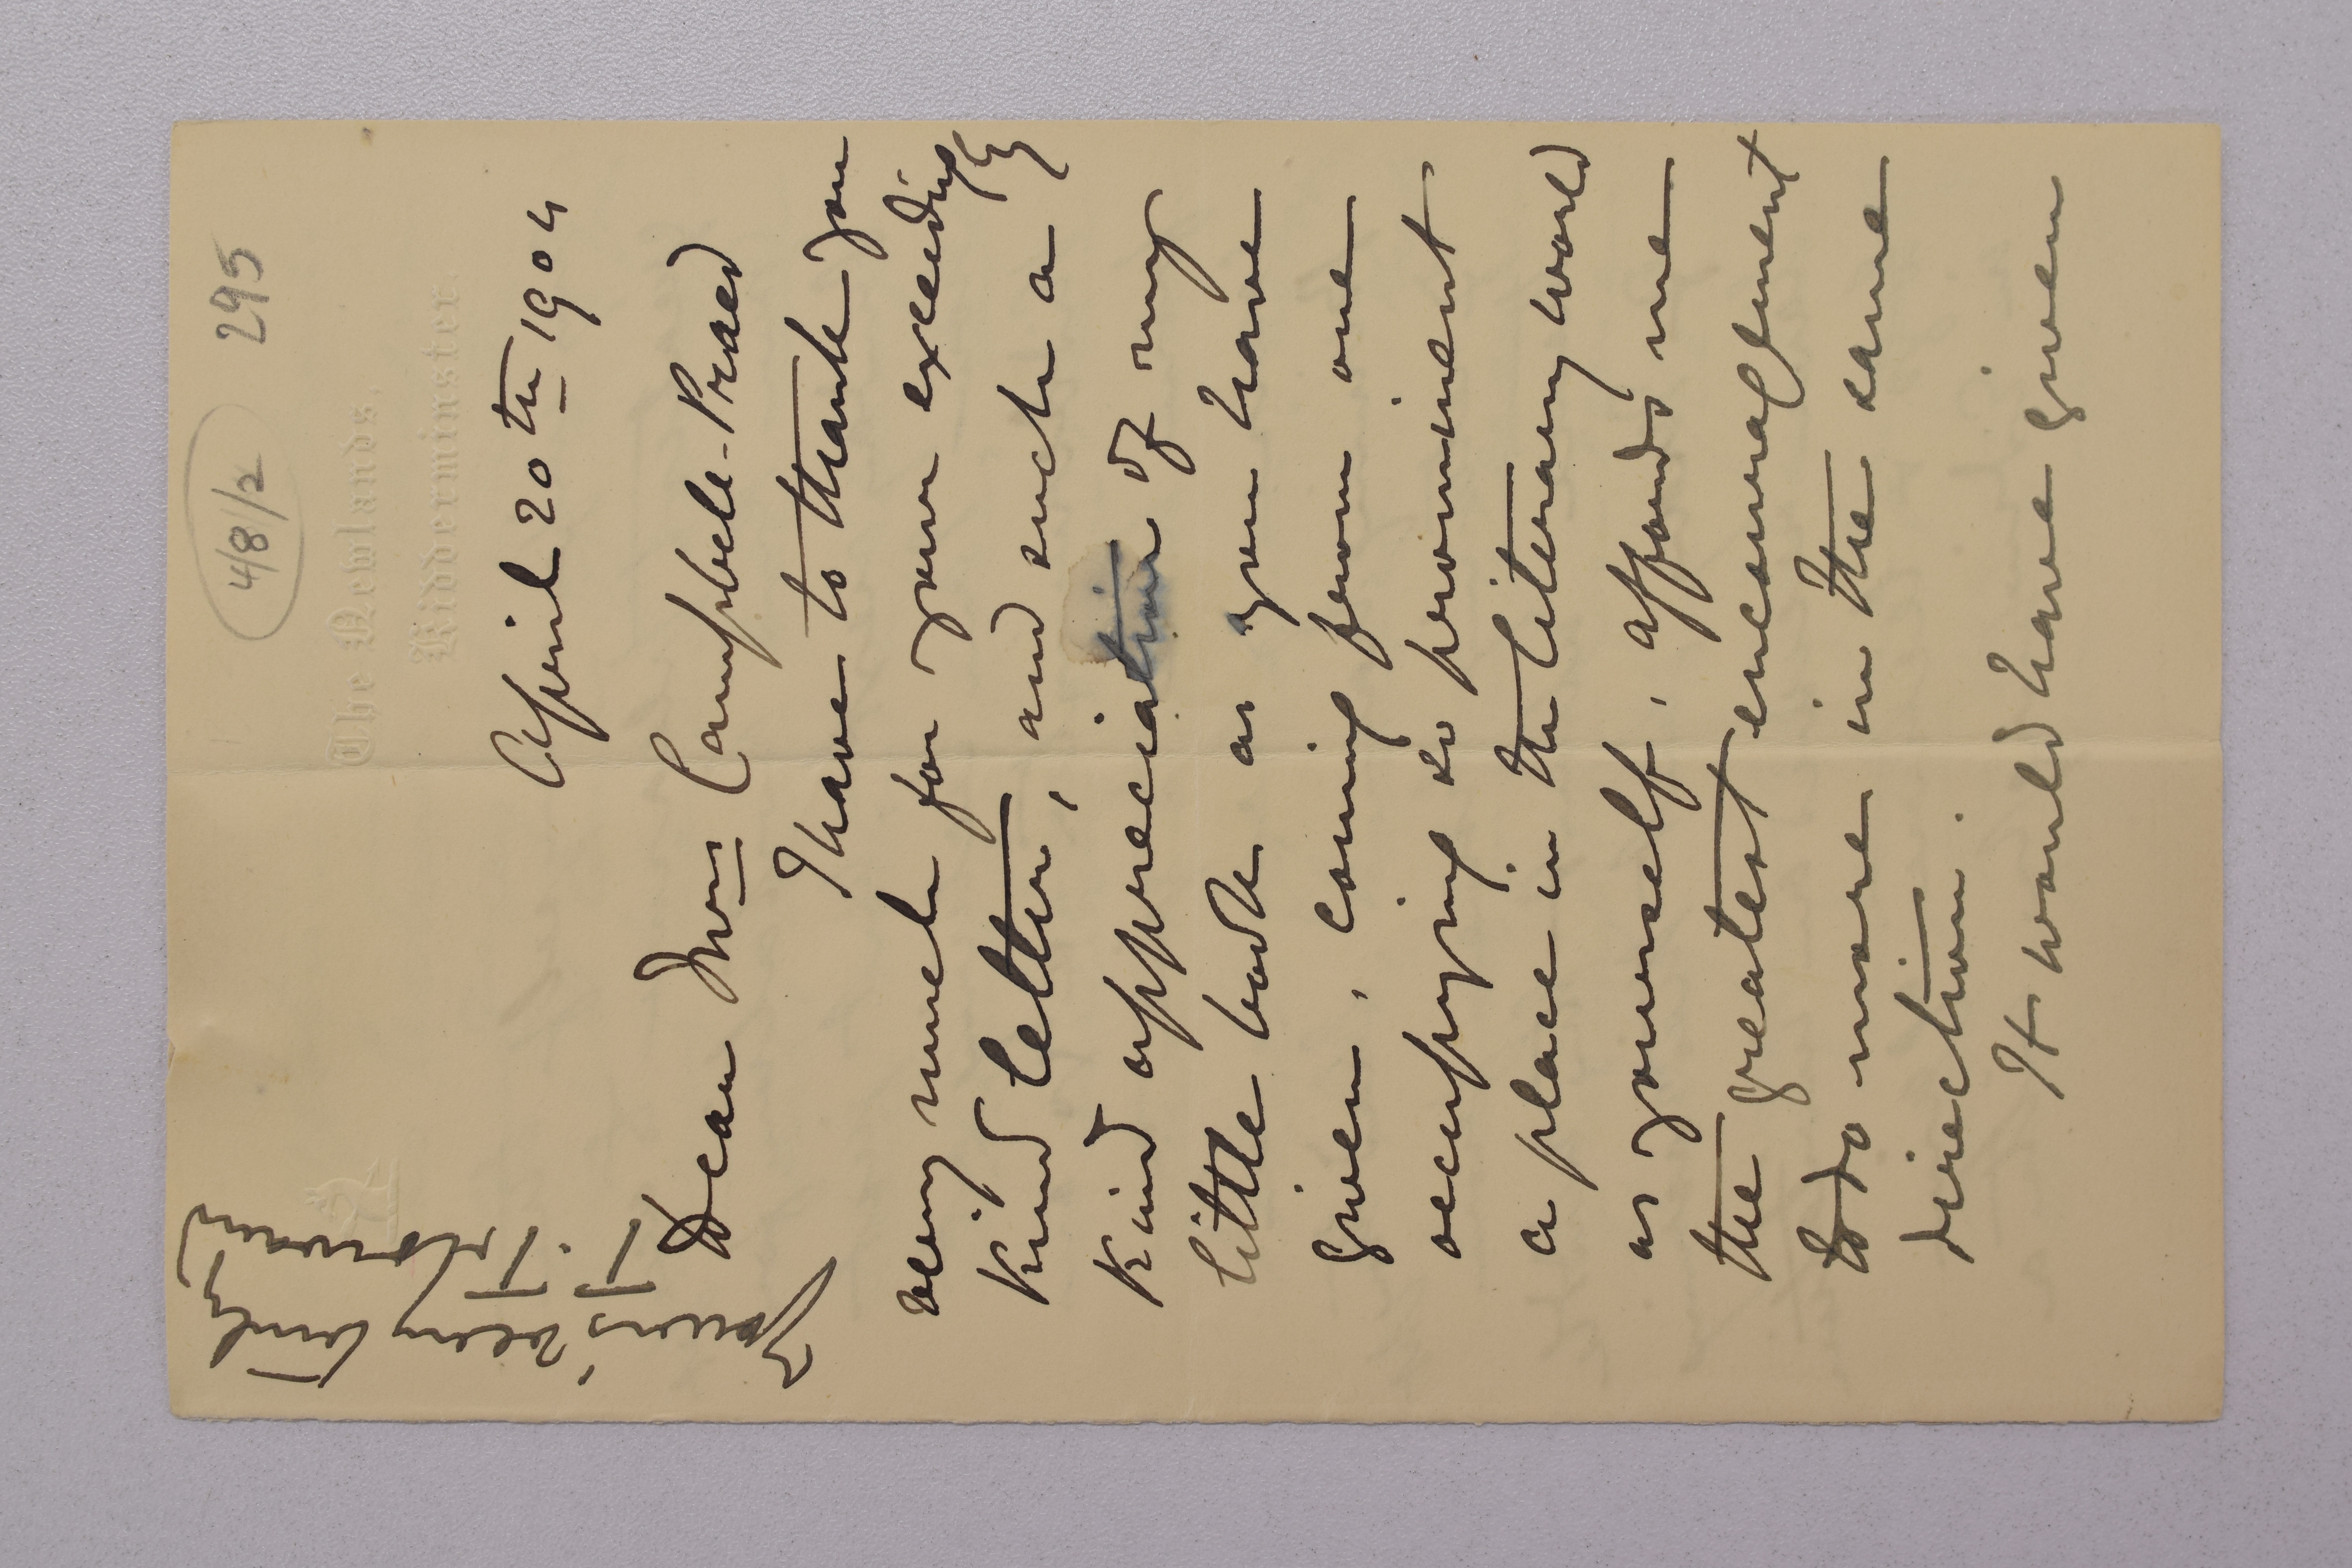 4/8/2 295
The Newlands,
Kidderminster.
April 20th 1904
Dear Mrs Campbell-Praed
I have to thank you
very much for your exceedingly
kind letter, and such a
kind appreciation of my
little book as you have
given, coming from one
occupying so prominent
a place in the literary world
as yourself, affords me
the greatest encouragement
to do more in the same
direction.
It would have given
very